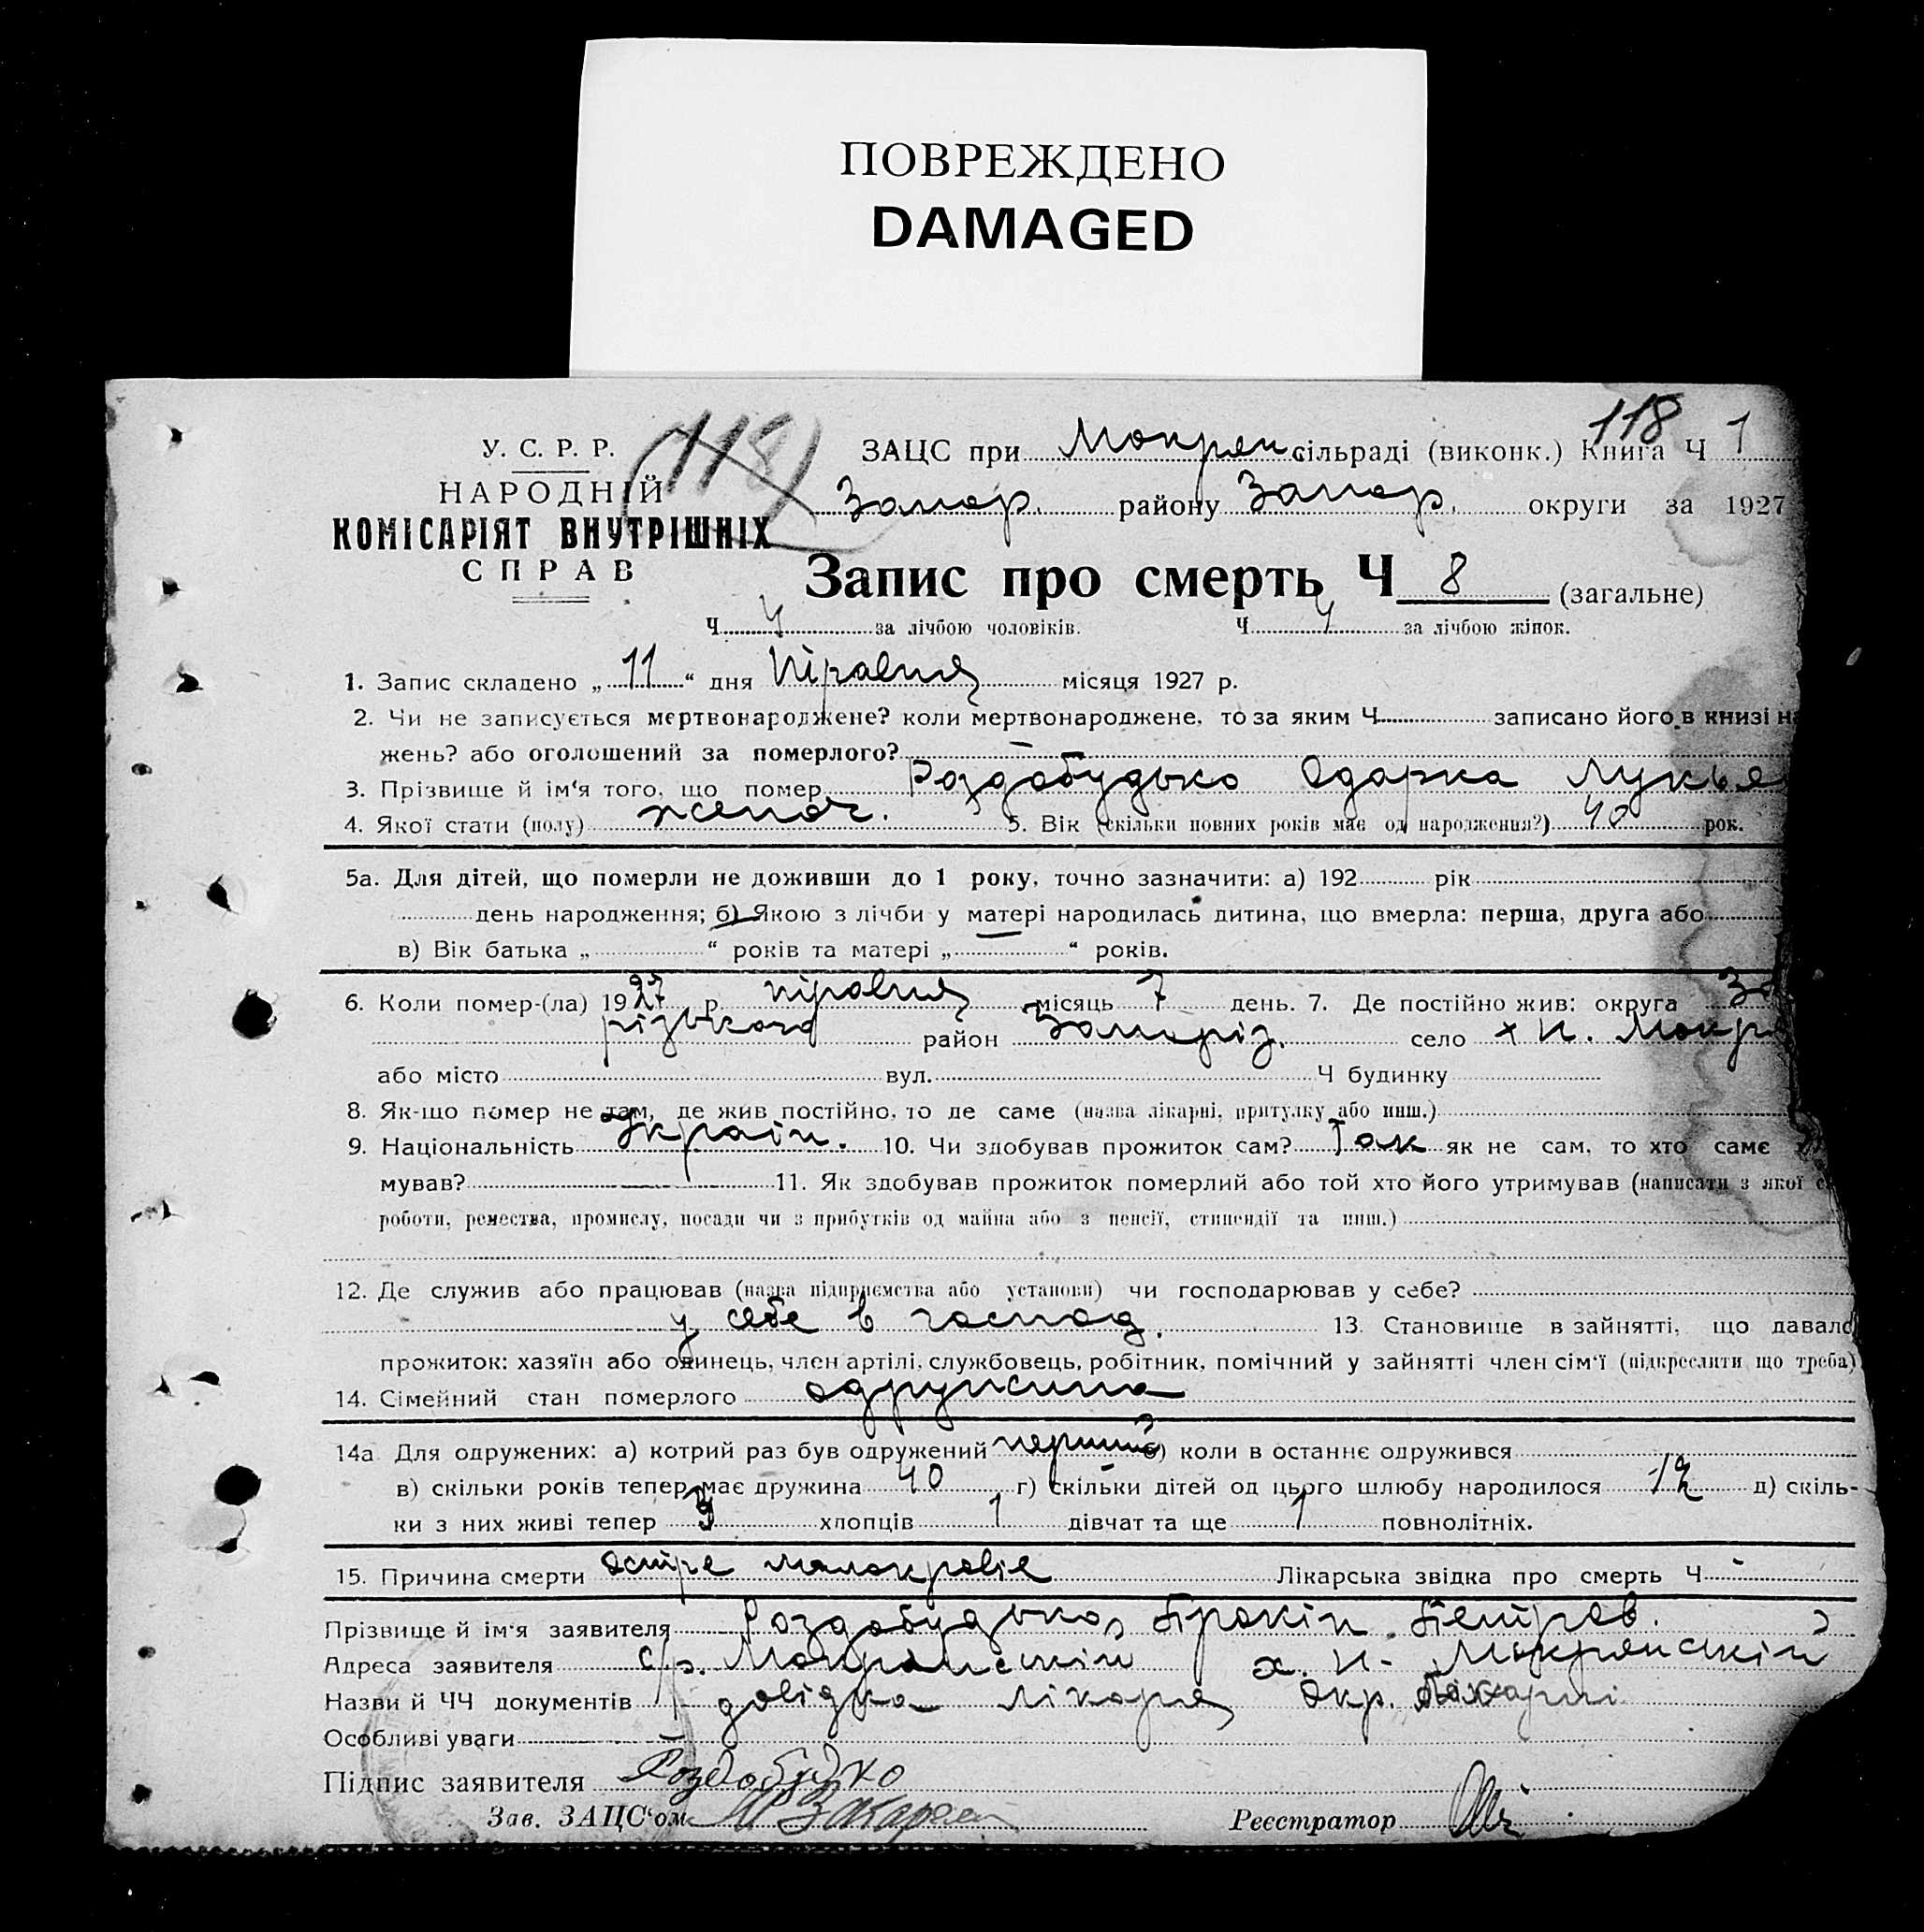 ПОВРЕЖДЕНО
DAMAGED
118
118
У. С. Р. Р.
НАРОДНІЙ
КОМІСАРІЯТ ВНУТРІШНІХ
СПРАВ
ЗАЦС при Мокрян. сільраді (виконк.) Книга Ч 1
Запор. району Запор. округи за 1927
Запис про смерть Ч 8 (загальне)
Ч 4 за лічбою чоловіків. Ч 4 за лічбою жінок.
1. Запис складено „ 11 “ дня травня місяця 1927 р.
2. Чи не записується мертвонароджене? коли мертвонароджене, то за яким Ч записано його в книзі на
жень? або оголошений за померлого? —
3. Прізвище й ім'я того, що помер Роздобудько Одарка Лукья
4. Якої стати (полу) жіноч. 5. Вік (скільки повних років має од народження?) 40 рок.
5а. Для дітей, що померли не доживши до 1 року, точно зазначити: а) 192 рік
день народження; б) Якою з лічби у матері народилась дитина, що вмерла: перша, друга або
в) Вік батька „ “ років та матері „ “ років.
6. Коли помер-(ла) 1927 р. травня місяць 7 день. 7. Де постійно жив: округа За
різького район Запоріз. село х Н. Мокр
або місто вул. Ч будинку
8. Як-що помер не там, де жив постійно, то де саме (назва лікарні, притулку або инш.)
9. Національність Україн. 10. Чи здобував прожиток сам? Так як не сам, то хто саме
мував? — 11. Як здобував прожиток померлий або той хто його утримував (написати з якої с
роботи, ремества, промислу, посади чи з прибутків од майна або з пенсії, стипендії та инш.)
12. Де служив або працював (назва підприємства або установи) чи господарював у себе?
у себе в господ. 13. Становище в зайнятті, що давало
прожиток: хазяїн або одинець, член артілі, службовець, робітник, помічний у зайнятті член сім'ї (підкреслити що треба)
14. Сімейний стан померлого одружина
14а Для одружених: а) котрий раз був одружений перший б) коли в останнє одружився
в) скільки років тепер має дружина 40 г) скільки дітей од цього шлюбу народилося 12 д) скіль-
ки з них живі тепер хлопців 1 дівчат та ще 1 повнолітніх.
15. Причина смерти остре малокровіе Лікарська звідка про смерть Ч -
Прізвище й ім'я заявителя Роздобудько, Прокіп Петров.
Адреса заявителя с/р. Мокрянській х. Н- Мокрянській
Назви й ЧЧ документів довідка лікаря Окр. лікарні
Особливі уваги —
Підпис заявителя Роздобудко
Зав. ЗАЦС'ом Реєстратор